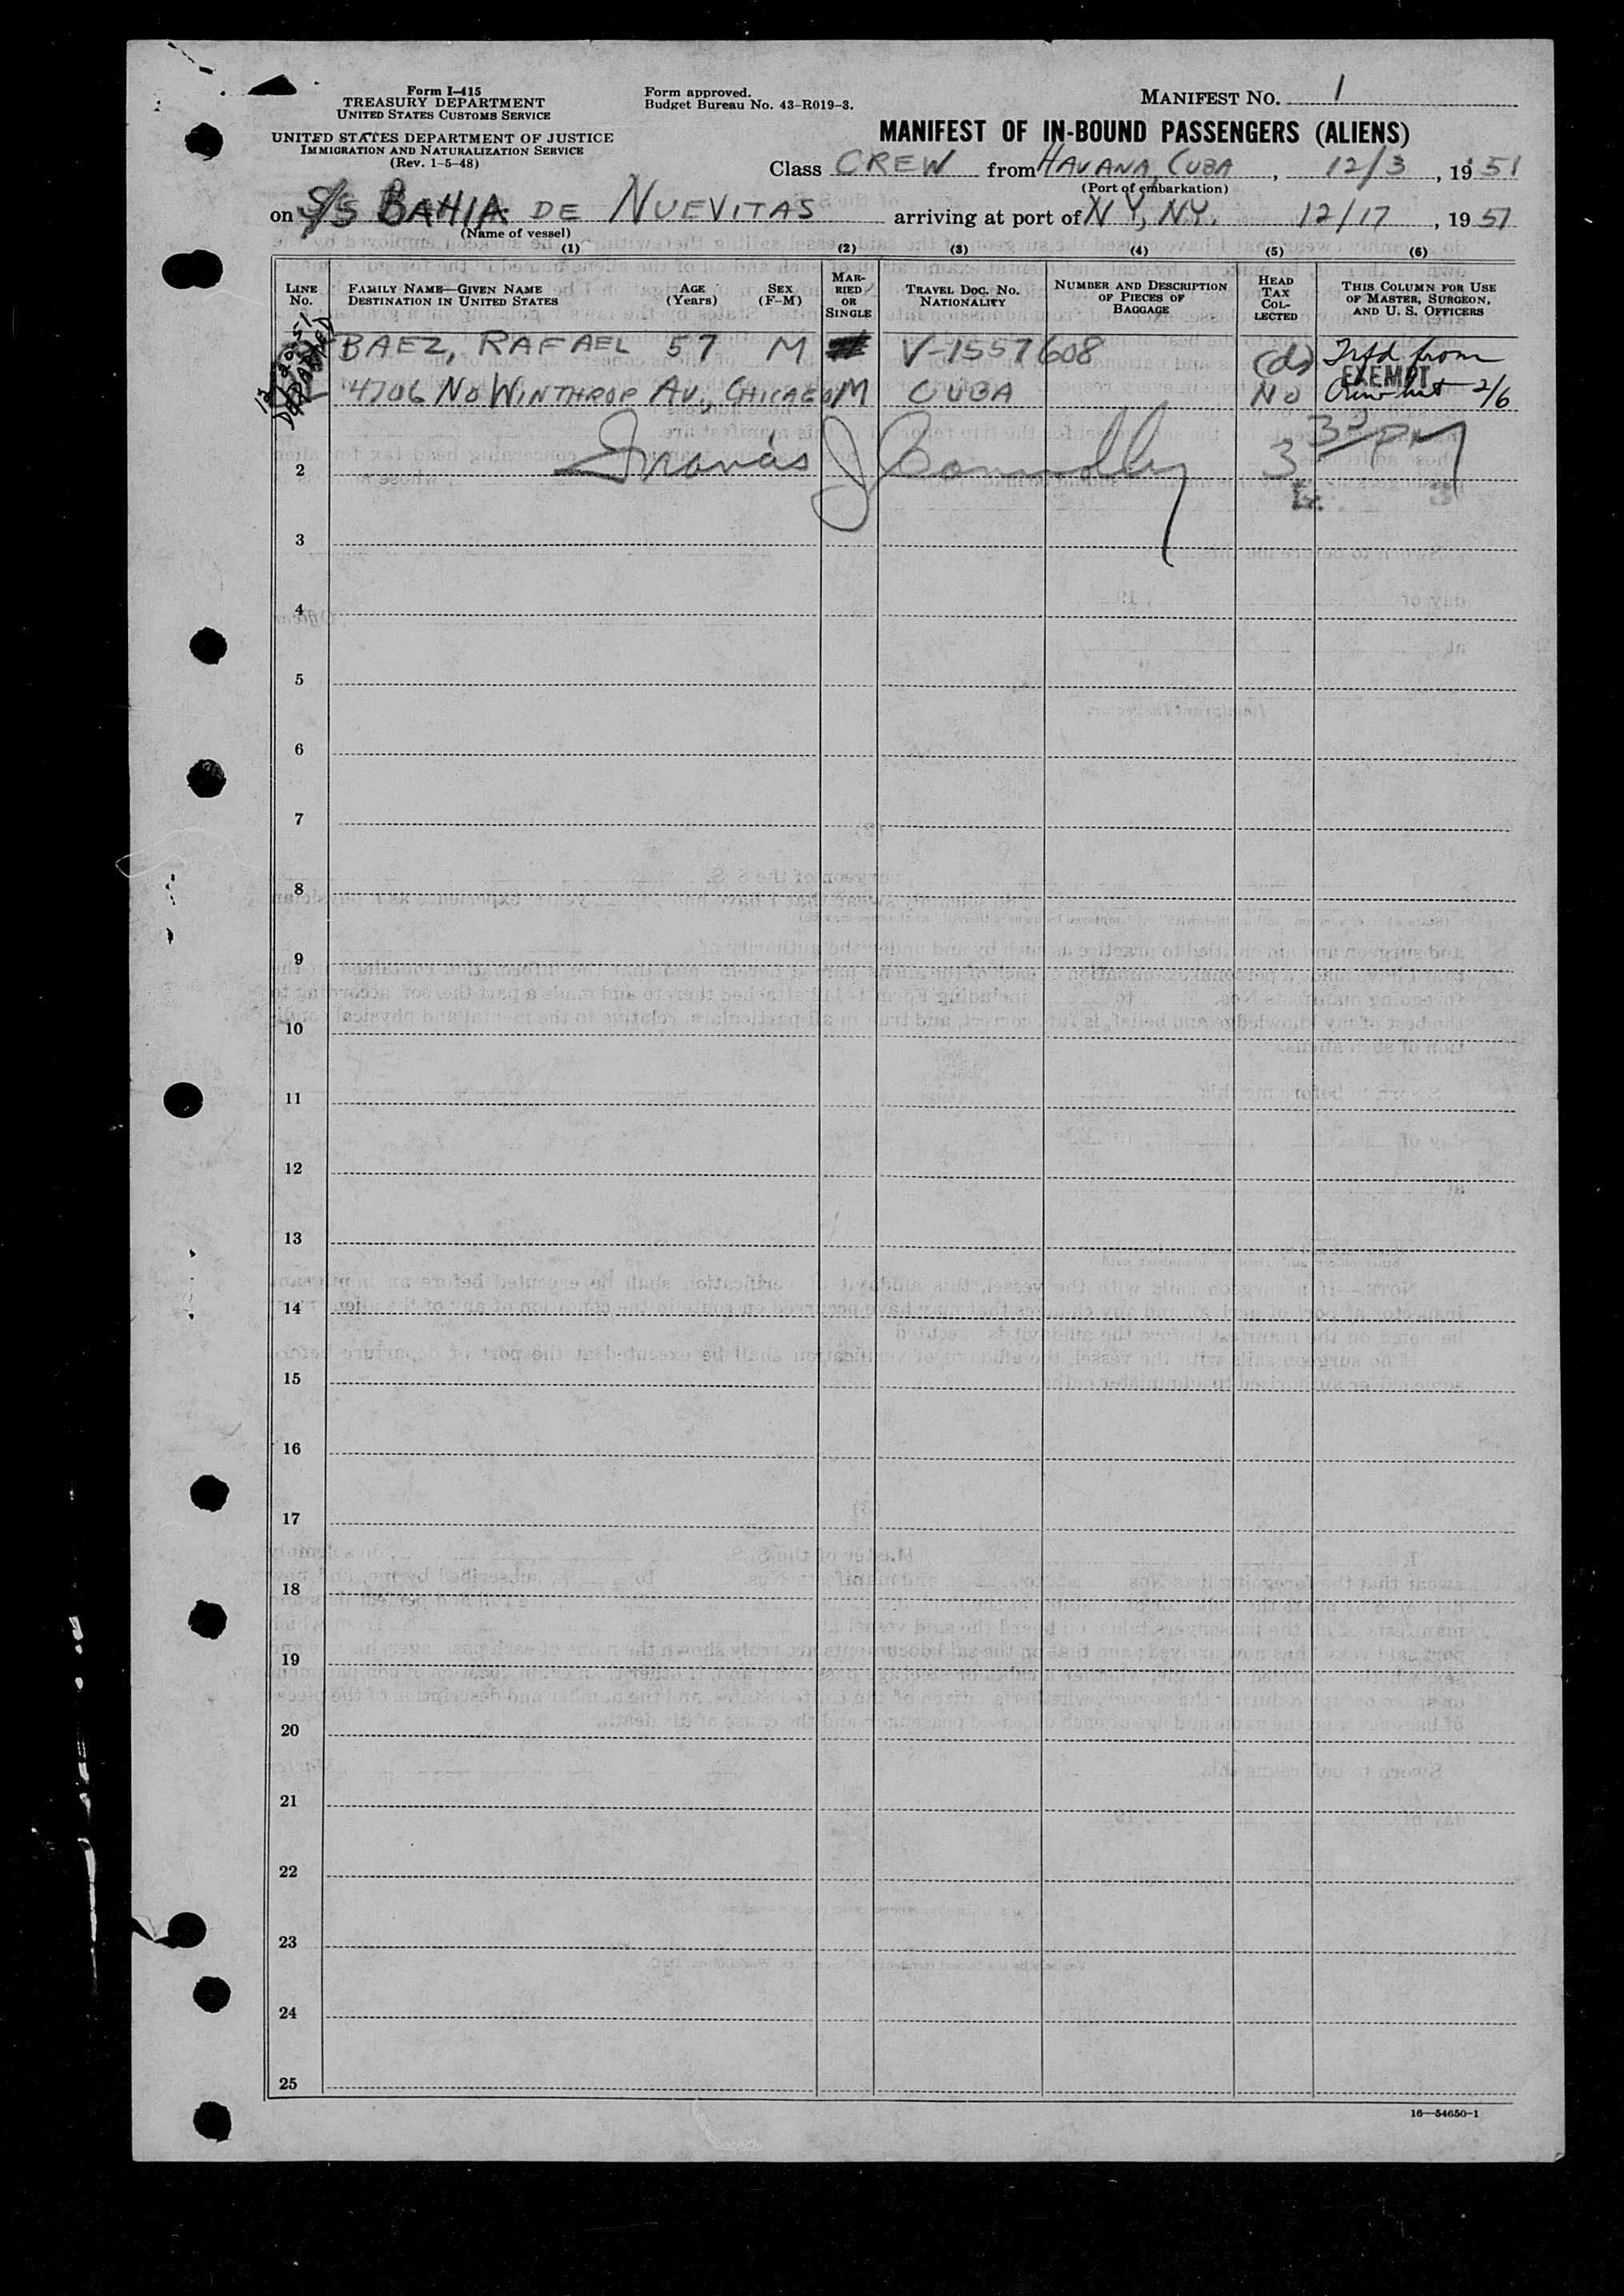 Form I-415
TREASURY DEPARTMENT
UNITED STATES CUSTOMS SERVICE
UNITED STATES DEPARTMENT OF JUSTICE
IMMIGRATION AND NATURALIZATION SERVICE
(Rev. 1-5-48)
Form approved.
Budget Bureau No. 43-R019-3.
MANIFEST NO. 1
MANIFEST OF IN-BOUND PASSENGERS (ALIENS)
Class CREW from HAVANA, CUBA, 12/3, 1951
(Port of embarkation)
on S/S BAHIA DE NUEVITAS arriving at port of N Y, N.Y. 12/17, 1951
(Name of vessel)
(1) (2) (3) (4) (5) (6)
LINE No.
FAMILY NAME—GIVEN NAME
DESTINATION IN UNITED STATES
AGE (Years)
SEX (F-M)
MARRIED OR SINGLE
TRAVEL DOC. NO.
NATIONALITY
NUMBER AND DESCRIPTION OF PIECES OF BAGGAGE
HEAD TAX COLLECTED
THIS COLUMN FOR USE OF MASTER, SURGEON, AND U. S. OFFICERS
BAEZ, RAFAEL 57 M V-1557608 (d) Trfd from
EXEMPT
4706 NO WINTHROP AV., CHICAGO M CUBA NO Crew list 2/6
DEPARTED
2 Francis J Connolly 3 30 PM
3
4
5
6
7
8
9
10
11
12
13
14
15
16
17
18
19
20
21
22
23
24
25
16—54650-1